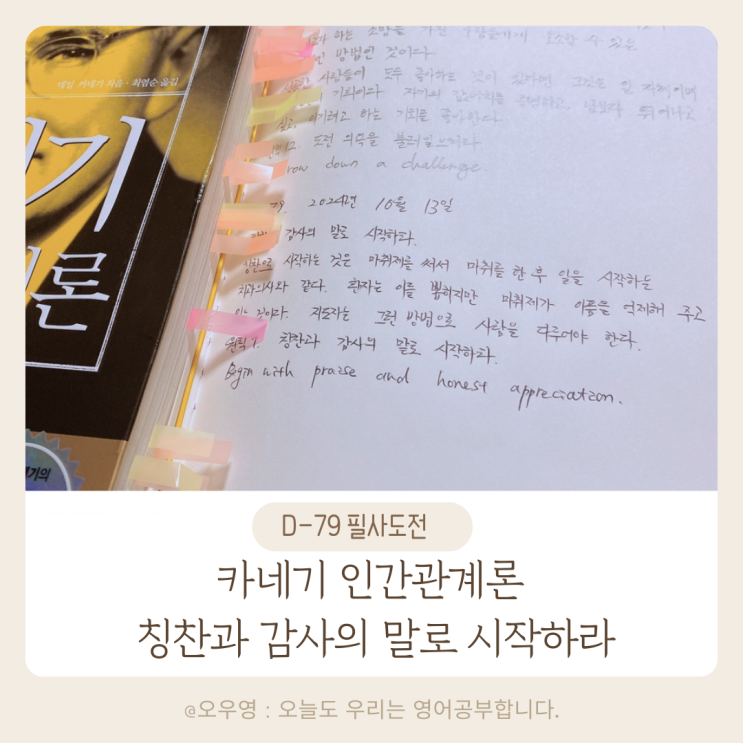 데일 카네기 지음 · 최염순 옮김
기
론
기의
하는 소망을 가진 사람들에게 호소할 수 있는
방법인 것이다
사람들이 모두 좋아하는 것이 있다면 그것은 일 자체이며
기회이다. 자기의 값어치를 증명하고, 남보다 뛰어나고
싶고, 이기려고 하는 기회를 좋아한다.
도전 의욕을 불러일으켜라.
row down a challenge.
79. 2024년 10월 13일
감사의 말로 시작하라.
칭찬으로 시작하는 것은 마취제를 써서 마취를 한 후 일을 시작하는
치과의사와 같다. 환자는 이를 뽑히지만 마취제가 아픔을 억제해 주고
있는 것이다. 지도자는 그런 방법으로 사람을 다루어야 한다.
원칙 1. 칭찬과 감사의 말로 시작하라.
Begin with praise and honest appreciation.
D-79 필사도전
카네기 인간관계론
칭찬과 감사의 말로 시작하라
@오우영 : 오늘도 우리는 영어공부합니다.